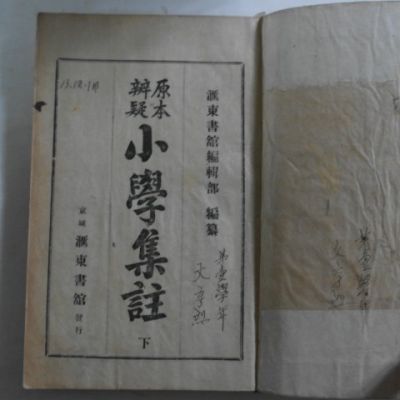 滙東書舘編輯部 編纂
原本
辨疑
小學集註
下
京城 滙東書舘 發行
弟壹學年